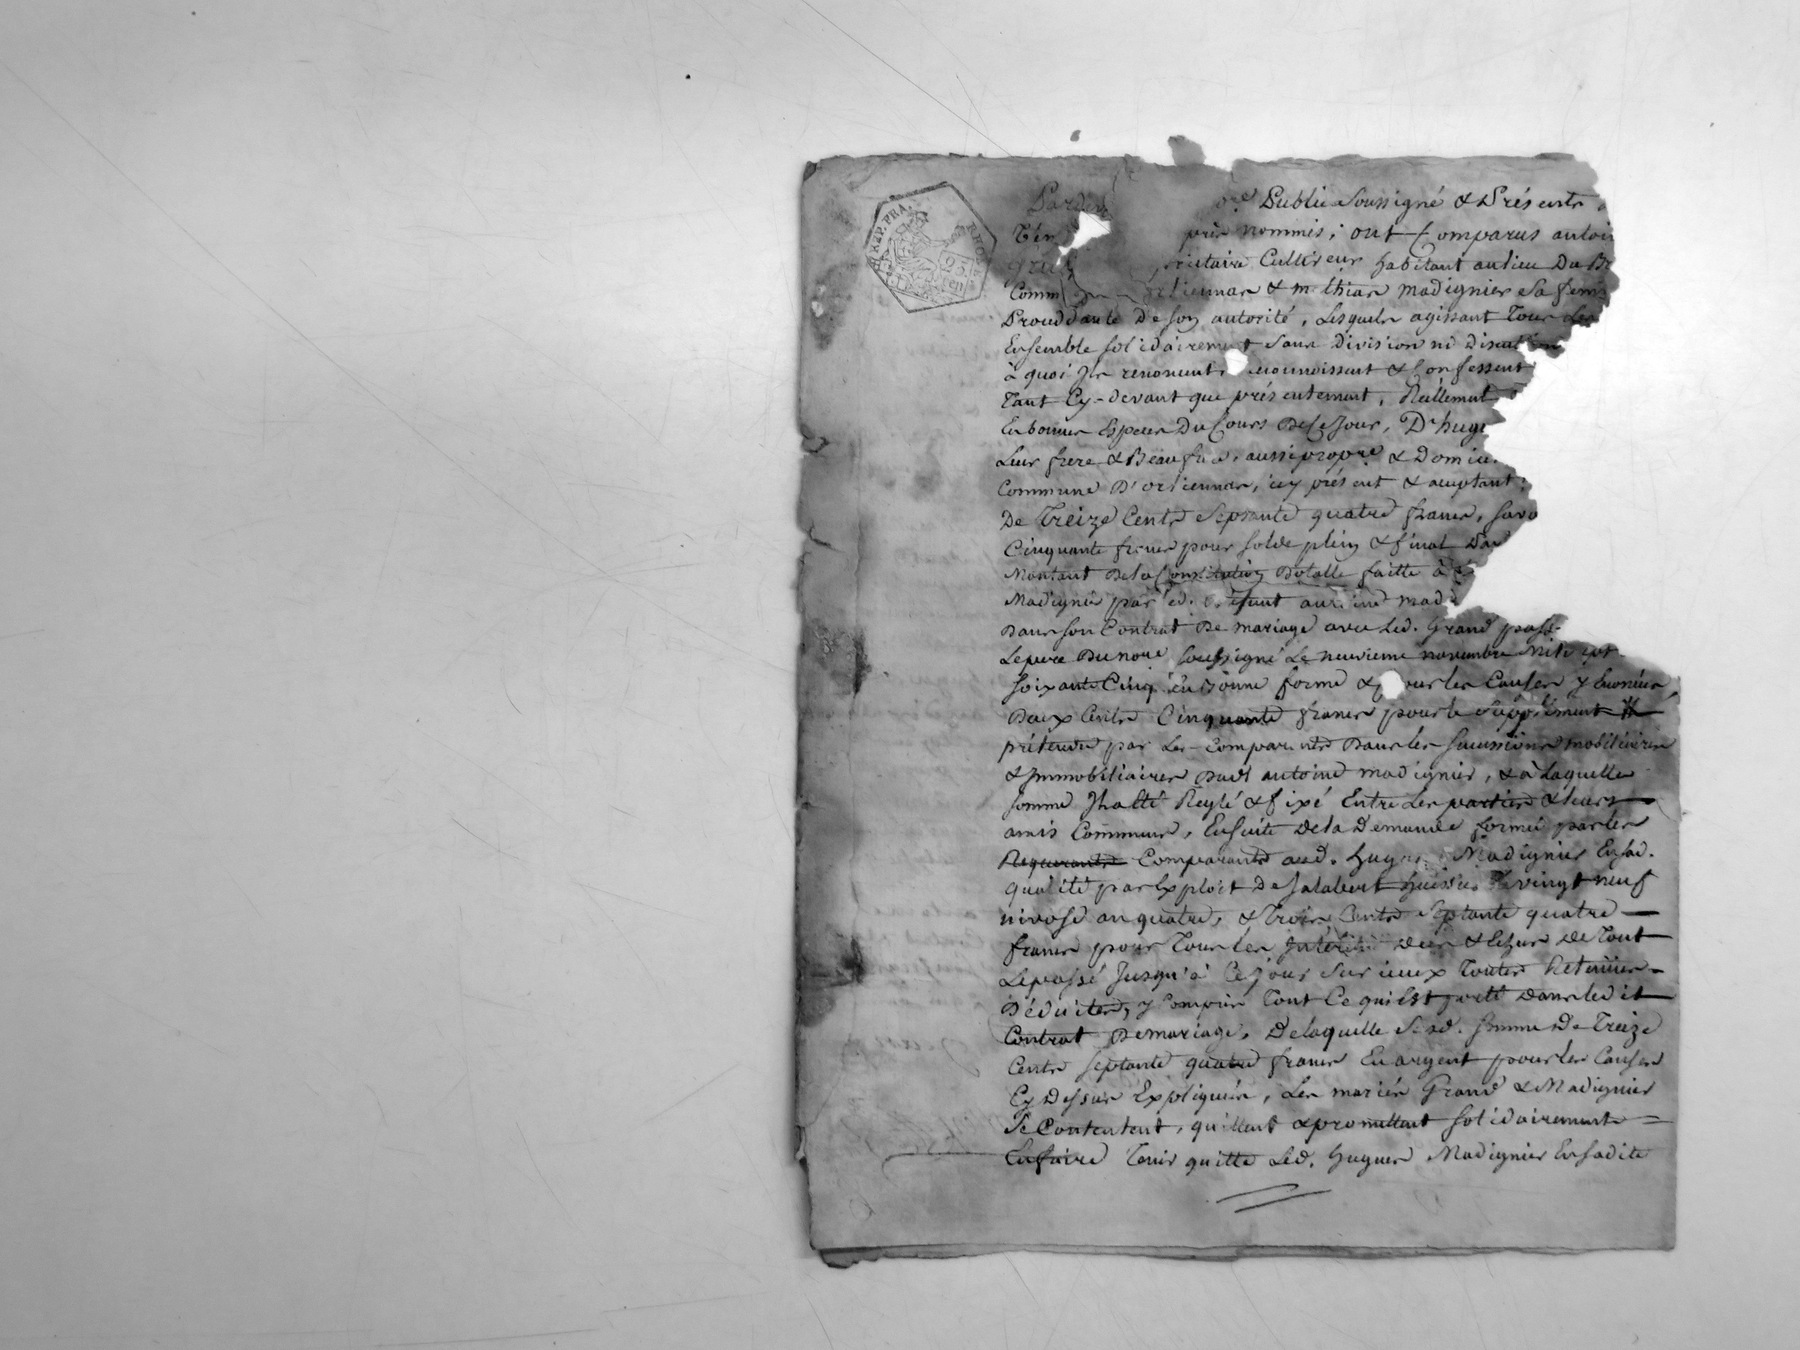 RÉP. FRA.
RHO
25
cen
Pardev re Public Soussigné & Présents
Tém près nommés, ont Comparus antoi
gra prietaire Cultiveur habitant au lieu Du
Comm orliennas & mathias madignier Sa fem
Prouddante De son autorité, Lesquels agissant Tous Les
Ensemble solidairement Sans Division ni Discution
à quoi Ils renoncent, reconnoissent & Confessent
Tant Cy-devant que présentement, Réellement
En bonnes Espèces Du Cours De Ce Jour, D'hugu
Leur frere & Beaufrere, aussi propre & Domic
Commune D'orliennas, icy présent & acceptant
De Treize Cents Septante quatre francs, savo
Cinquante francs pour solde plein & final
Montant De la Constitution Dotalle faitte à
Madignier par led. Deffunt antoine madi
Dans son Contrat De mariage avec Led. Grand pass
Le pere Du not.re soussigné Le neuvieme novembre Mil sept
soixante Cinq en bonne forme & pour les Causes y Enoncées
Deux Cents Cinquante francs pour le supplément
prétendu par Les Comparants Dans les successions mobiliaires
& Immobiliaires Dud antoine madignier, & à Laquelle
somme Il a été Reglé & fixé Entre Les parties & leurs
amis Communs, Ensuite De la Demande formée par les
Requerants Comparants aud. hugues Madignier Esad.
qualité par Exploit De Jalabert huissier Le vingt neuf
nivose an quatre, & Trois Cents Septante quatre
francs pour Tous les Intérêts dus & Echus De Tout
Le passé Jusqu'à Ce jour Sur iceux Toutes Retenues
Déduites, y Compris Tout Ce qui Est porté Dans ledit
Contrat De mariage, De laquelle Susd. somme De Treize
Cents septante quatre francs En argent pour les Causes
Cy Dessus Expliquées, Les mariés Grand & Madignier
se Contentent, quittent & promettent solidairement
En faire Tenir quitte Led. hugues Madignier En sadite